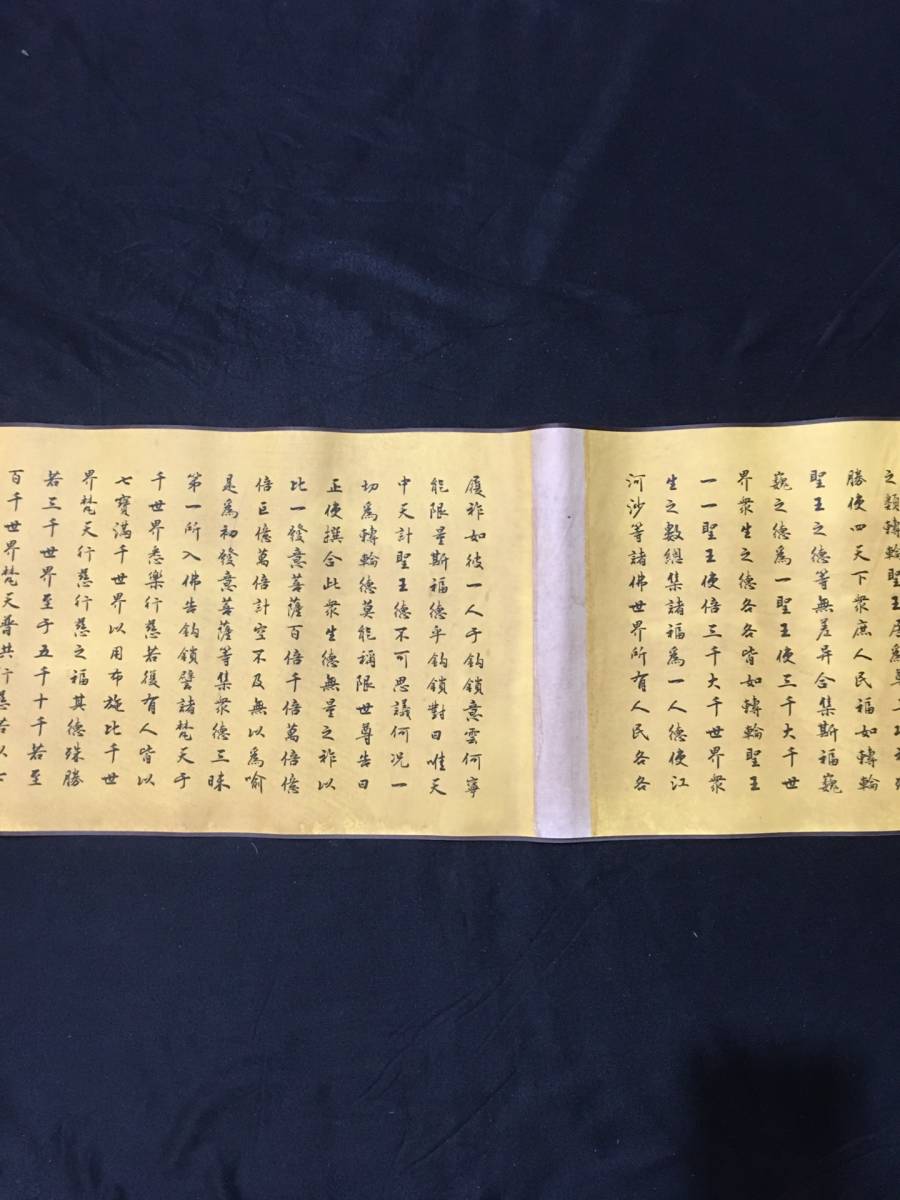 之類轉輪聖王
勝使四天下眾庶人民福如轉輪
聖王之德等無差异合集斯福巍
巍之德為一聖王使三千大千世
界眾生之德各各皆如轉輪聖王
一一聖王使倍三千大千世界眾
生之數總集諸福為一人德使江
河沙等諸佛世界所有人民各各
履祚如彼一人于鈎鎖意雲何寧
能限量斯福德乎鈎鎖對曰唯天
中天計聖王德不可思議何況一
切為轉輪德莫能稱限世尊告曰
正使撰合此眾生德無量之祚以
比一發意菩薩百倍千倍萬倍億
倍巨億萬倍計空不及無以為喻
是為初發意菩薩等集眾德三昧
第一所入佛告鈎鎖譬諸梵天于
千世界悉樂行慈若復有人皆以
七寶滿千世界以用布施比千世
界梵天行慈行慈之福其德殊勝
若三千世界至于五千十千若至
百千世界梵天普共行慈若以七